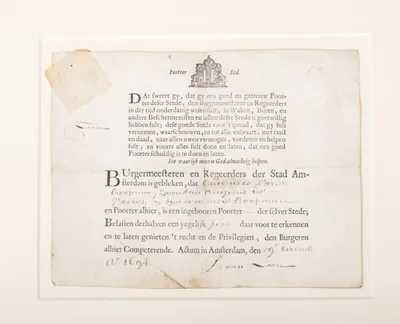 Poorter Eed.
DAt sweert gy, dat gy een goed en getrouw Poor-
ter deser Stede, den Burgermeesteren en Regeerders
in der tijd onderdanig wesen sult, in Waken, Byten, en
andere Beschermenissen en lasten deser Stede u goetwillig
hebben sult; dese goede Stede voor 't quaad, dat gy sult
vernemen, waarschouwen, en tot alle welvaart, met raad
en daad, naar allen u vermogen, vorderen en helpen
sult; en voorts alles sult doen en laten, dat een goed
Poorter schuldig is te doen en laten.
Soo waarlijk moet u God almachtig helpen.
BUrgermeesteren en Regeerders der Stad Am-
sterdam is gebleken, dat
en Poorter alhier, is een ingebooren Poorter der selver Stede;
Belasten derhalven een yegelijk voor te erkennen
en te laten genieten 't recht en de Privilegien, den Burgeren
alhier Competerende. Actum in Amsterdam, den 29
Aº 1694